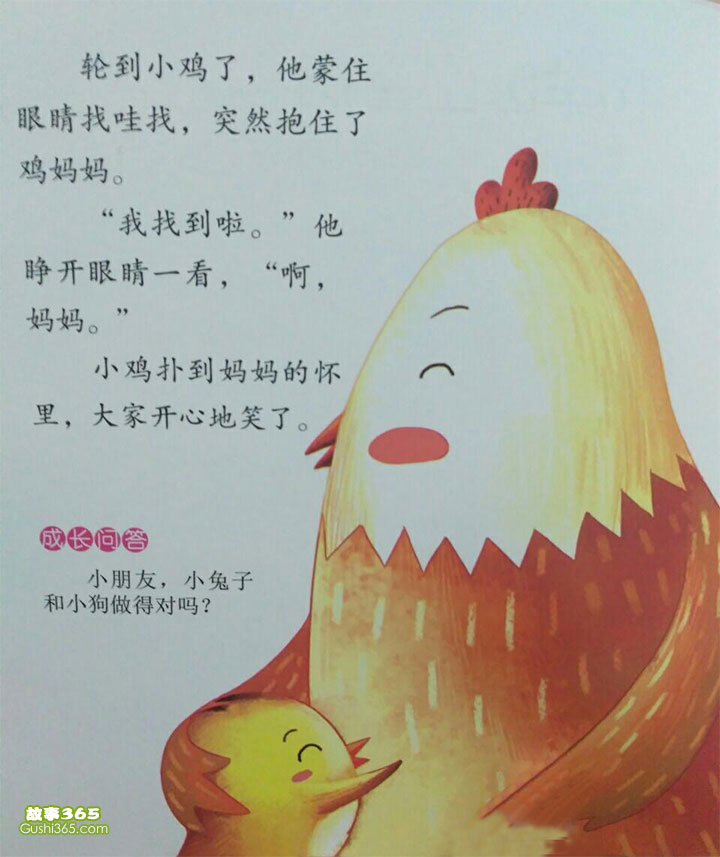 轮到小鸡了，他蒙住
眼睛找哇找，突然抱住了
鸡妈妈。
“我找到啦。”他
睁开眼睛一看，“啊，
妈妈。”
小鸡扑到妈妈的怀
里，大家开心地笑了。
成长问答
小朋友，小兔子
和小狗做得对吗？
故事365
Gushi365.com